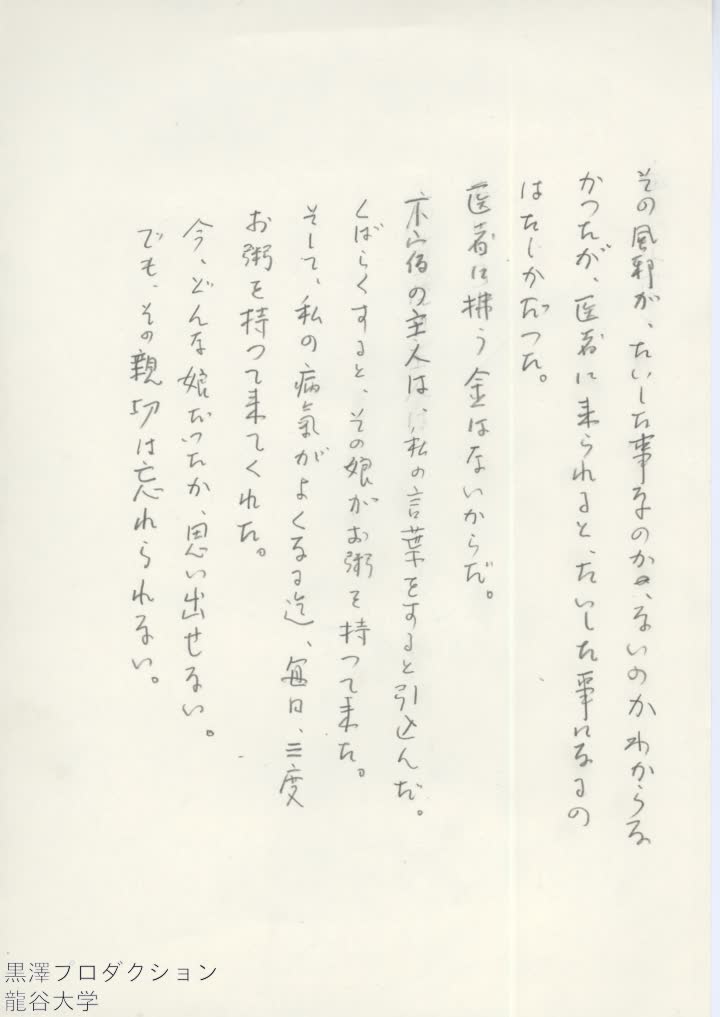 その風邪が、たいした事なのか、ないのかわからな
かつたが、医者に来られると、たいした事になるの
はたしかだつた。
医者に拂う金はないからだ。
下宿の主人は、私の言葉をすると引込んだ。
しばらくすると、その娘がお粥を持つて来た。
そして、私の病氣がよくなる迄、毎日、三度
お粥を持つて来てくれた。
今、どんな娘だつたか、思い出せない。
でも、その親切は忘れられない。
黒澤プロダクション
龍谷大学